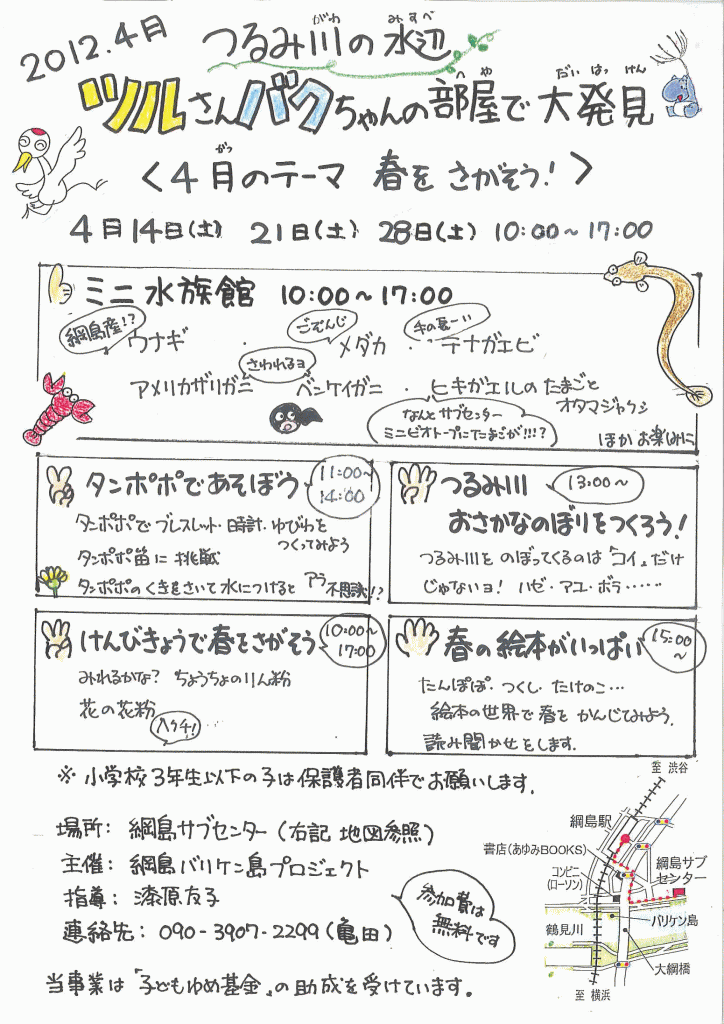 2012.4月
つるみ川の水辺
がわ みずべ
ツルさんバクちゃんの部屋で大発見
へや だいはっけん
〈4月のテーマ 春をさがそう!〉
がつ
4月14日(土) 21日(土) 28日(土) 10:00~17:00
ミニ水族館 10:00~17:00
綱島産!?
ウナギ
ごぞんじ
メダカ
手の長ーい
テナガエビ
さわれるヨ
アメリカザリガニ・ベンケイガニ・ヒキガエルのたまごと
オタマジャクシ
なんとサブセンター
ミニビオトープにたまごが!!!?
ほか お楽しみに
タンポポであそぼう
11:00~
14:00
タンポポでブレスレット・時計・ゆびわを
つくってみよう
タンポポ笛に挑戦
タンポポのくきをさいて水につけると アラ不思議!?
つるみ川 13:00~
おさかなのぼりをつくろう!
つるみ川をのぼってくるのは「コイ」だけ
じゃないョ! ハゼ・アユ・ボラ……
けんびきょうで春をさがそう
10:00~
17:00
みれるかな? ちょうちょのりん粉
花の花粉
ハクチ!
春の絵本がいっぱい
15:00
~
たんぽぽ・つくし・たけのこ…
絵本の世界で春をかんじてみよう。
読み聞かせをします。
※小学校3年生以下の子は保護者同伴でお願いします。
場所: 綱島サブセンター(右記 地図参照)
主催: 綱島バリケン島プロジェクト
指導: 漆原友子
連絡先: 090-3907-2299(亀田)
参加費は
無料です
当事業は「子どもゆめ基金」の助成を受けています。
至 渋谷
綱島駅
書店(あゆみBOOKS)
コンビニ
(ローソン)
綱島サブ
センター
バリケン島
鶴見川
大綱橋
至 横浜